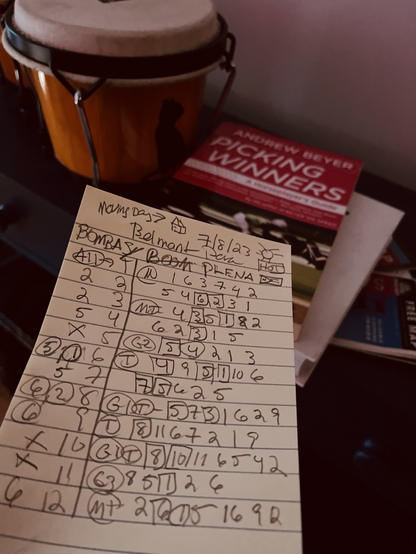 ANDREW BEYER
PICKING
WINNERS
A Horseplayer's Guide
7/8/23
Belmont
HOT
BOMBA & BOOM PLENA
All 1 M 1 6 3 7 4 2
2 2 5 4 6 2 3 1
2 3 M+ 4 3 5 1 8 2
5 4 6 2 3 1 5
X 5 G2 5 4 2 1 3
5 1 6 T 4 9 5 1 10 6
5 7 7 5 6 2 5
6 2 8 G 5 7 3 1 6 2 9
6 9 T 8 11 6 7 2 1 9
X 10 G1 T 8 10 11 6 5 4 2
X 11 G3 8 5 1 2 6
6 12 M+ 2 5 1 6 9 2